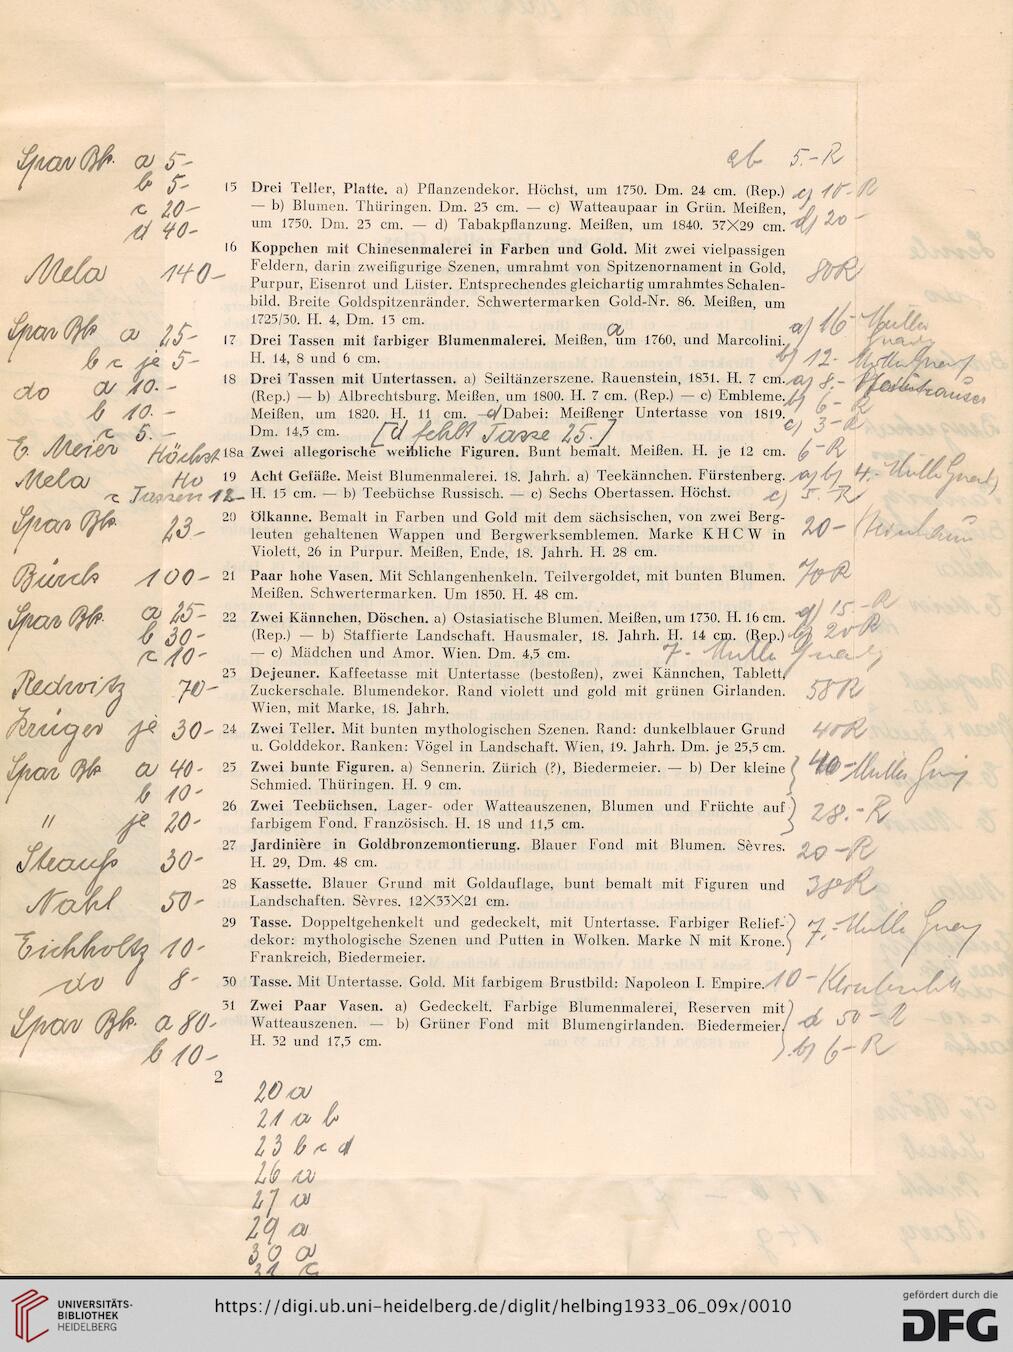 Spar Bk. a 5-
b 5-
c 20-
d 40-
ab 5.-R
c) 10-R
d) 20-
15 Drei Teller, Platte. a) Pflanzendekor. Höchst, um 1750. Dm. 24 cm. (Rep.)
— b) Blumen. Thüringen. Dm. 23 cm. — c) Watteaupaar in Grün. Meißen,
um 1750. Dm. 23 cm. — d) Tabakpflanzung. Meißen, um 1840. 37×29 cm.
Mela 140-
16 Koppchen mit Chinesenmalerei in Farben und Gold. Mit zwei vielpassigen
Feldern, darin zweifigurige Szenen, umrahmt von Spitzenornament in Gold,
Purpur, Eisenrot und Lüster. Entsprechendes gleichartig umrahmtes Schalen-
bild. Breite Goldspitzenränder. Schwertermarken Gold-Nr. 86. Meißen, um
1725/30. H. 4, Dm. 13 cm.
80R
Spar Bk a 25-
b c je 5-
17 Drei Tassen mit farbiger Blumenmalerei. Meißen, um 1760, und Marcolini.
H. 14, 8 und 6 cm.
a
a) 16-
b) 12-
do a 10.-
b 10.-
c 5.-
18 Drei Tassen mit Untertassen. a) Seiltänzerszene. Rauenstein, 1831. H. 7 cm.
(Rep.) — b) Albrechtsburg. Meißen, um 1800. H. 7 cm. (Rep.) — c) Embleme.
Meißen, um 1820. H. 11 cm. — d Dabei: Meißener Untertasse von 1819.
Dm. 14,5 cm. [d fehlt Tasse 25.]
a) 8.-
b) 6-R
c) 3-R
E. Meier Höchst
18a Zwei allegorische weibliche Figuren. Bunt bemalt. Meißen. H. je 12 cm.
6-R
Mela Ho
c Tassen 12-
19 Acht Gefäße. Meist Blumenmalerei. 18. Jahrh. a) Teekännchen. Fürstenberg.
H. 13 cm. — b) Teebüchse Russisch. — c) Sechs Obertassen. Höchst.
a) b) 4.-
c) 5.-R
Spar Bk. 23-
20 Ölkanne. Bemalt in Farben und Gold mit dem sächsischen, von zwei Berg-
leuten gehaltenen Wappen und Bergwerksemblemen. Marke K H C W in
Violett, 26 in Purpur. Meißen, Ende, 18. Jahrh. H. 28 cm.
20-
Bürck 100-
21 Paar hohe Vasen. Mit Schlangenhenkeln. Teilvergoldet, mit bunten Blumen.
Meißen. Schwertermarken. Um 1850. H. 48 cm.
70R
Spar Bk. a 25-
b 30-
c 10-
22 Zwei Kännchen, Döschen. a) Ostasiatische Blumen. Meißen, um 1730. H. 16 cm.
(Rep.) — b) Staffierte Landschaft. Hausmaler, 18. Jahrh. H. 14 cm. (Rep.)
— c) Mädchen und Amor. Wien. Dm. 4,5 cm.
a) 15.-R
b) 20R
7.-
Redwitz 70-
23 Dejeuner. Kaffeetasse mit Untertasse (bestoßen), zwei Kännchen, Tablett,
Zuckerschale. Blumendekor. Rand violett und gold mit grünen Girlanden.
Wien, mit Marke, 18. Jahrh.
58R
Krüger je 30-
24 Zwei Teller. Mit bunten mythologischen Szenen. Rand: dunkelblauer Grund
u. Golddekor. Ranken: Vögel in Landschaft. Wien, 19. Jahrh. Dm. je 25,5 cm.
40R
Spar Bk a 40-
b 10-
25 Zwei bunte Figuren. a) Sennerin. Zürich (?), Biedermeier. — b) Der kleine
Schmied. Thüringen. H. 9 cm.
40-
" je 20-
26 Zwei Teebüchsen. Lager- oder Watteauszenen, Blumen und Früchte auf
farbigem Fond. Französisch. H. 18 und 11,5 cm.
28.-R
Strauß 30-
27 Jardinière in Goldbronzemontierung. Blauer Fond mit Blumen. Sèvres.
H. 29, Dm. 48 cm.
20-R
Nahl 50-
28 Kassette. Blauer Grund mit Goldauflage, bunt bemalt mit Figuren und
Landschaften. Sèvres. 12×33×21 cm.
38R
Eichholtz 10-
29 Tasse. Doppeltgehenkelt und gedeckelt, mit Untertasse. Farbiger Relief-
dekor: mythologische Szenen und Putten in Wolken. Marke N mit Krone.
Frankreich, Biedermeier.
7.-
do 8-
30 Tasse. Mit Untertasse. Gold. Mit farbigem Brustbild: Napoleon I. Empire.
10-
Spar Bk. a 80-
b 10-
31 Zwei Paar Vasen. a) Gedeckelt. Farbige Blumenmalerei, Reserven mit
Watteauszenen. — b) Grüner Fond mit Blumengirlanden. Biedermeier.
H. 32 und 17,5 cm.
50-R
b) 6-R
2
20 a
21 a b
23 b c d
26 a
27 a
29 a
30 a
31 c
UNIVERSITÄTS-
BIBLIOTHEK
HEIDELBERG
https://digi.ub.uni-heidelberg.de/diglit/helbing1933_06_09x/0010
gefördert durch die
DFG